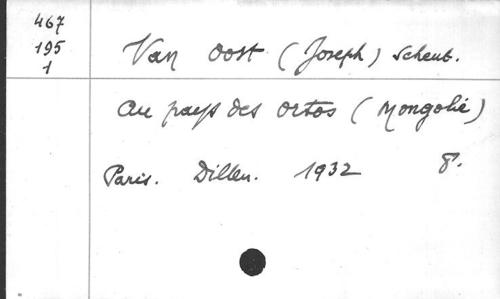 467
195
1
Van Oost (Joseph) Scheut.
Au pays des Ortos (Mongolie)
Paris. Dillen. 1932 8°.